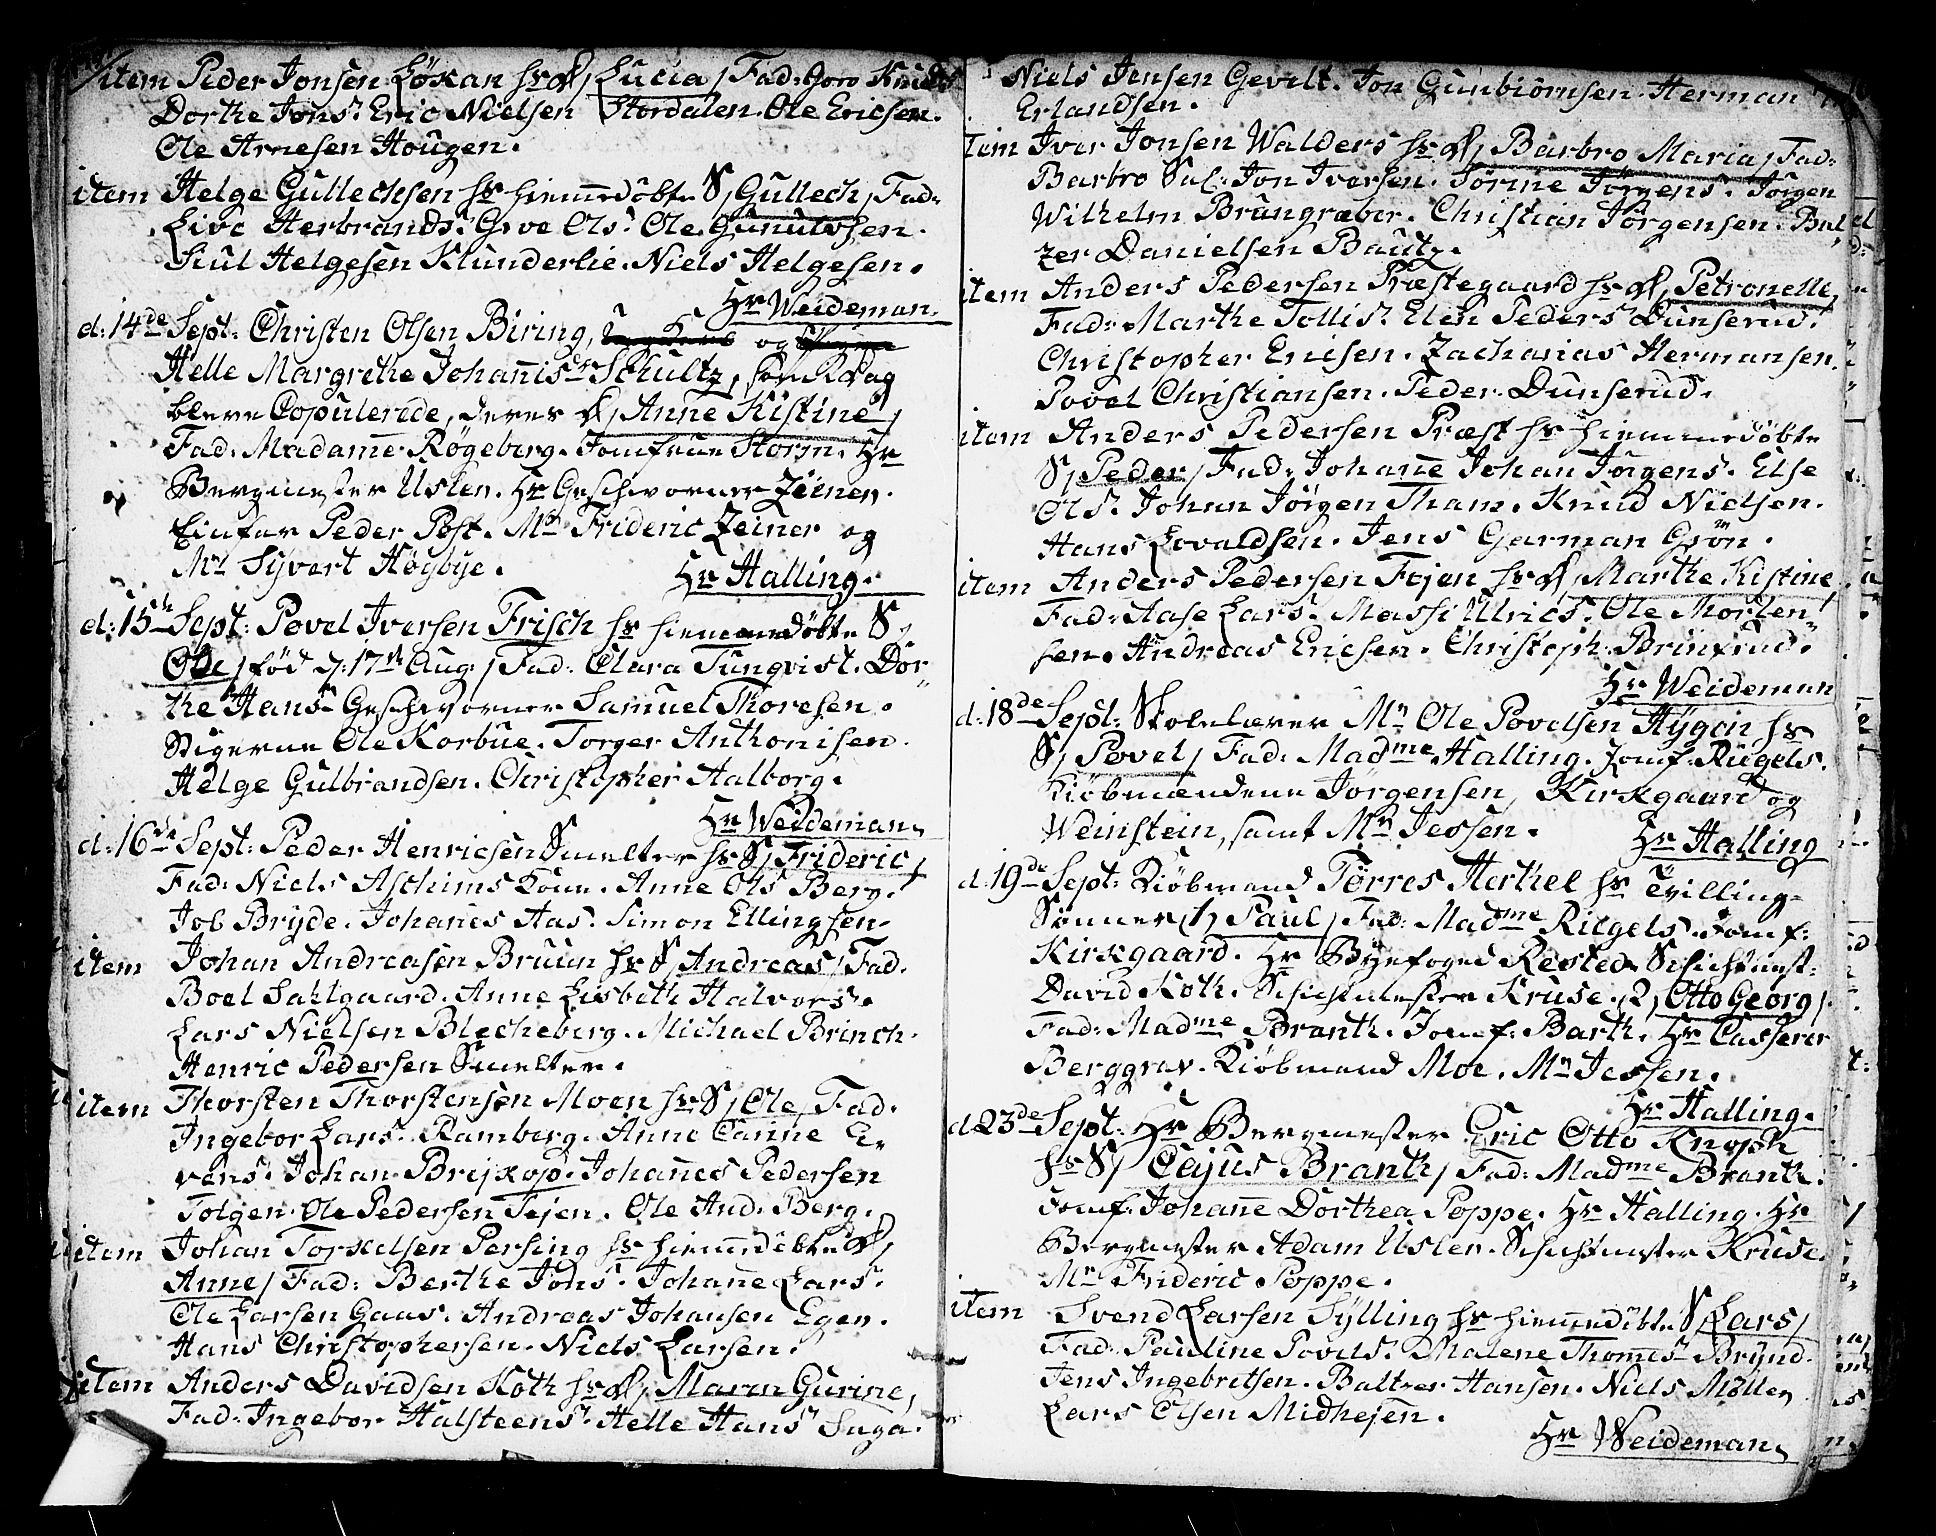 item Peder Jonsen Løkan hs D, Lucia, Fad: Joro Knuds
Dorthe Jons. Eric Nielsen Stordalen. Ole Ericsen.
Ole Arnesen Hougen.
item Helge Gullechsen hs hiemedøbte S, Gullech, Fad:
Live Herbrands. Groe Ols. Ole Gunulvsen.
Siul Helgesen Klunderlie. Niels Helgesen.
Hr Weideman.
d: 14de Sept: Christen Olsen Biring, og
Helle Margrethe Johannisdr Schultz, som R dag
bleve Copulerede, deres D, Anne Kistine,
Fad. Madame Røgeberg. Jomfrue Storm. Hr
Bergmester Usler. Hr Geschworner Zeiner.
Einfar Peder Post. Mr Frideric Zeiner og
Mr Syvert Høgbye.
Hr Halling.
d: 15de Sept: Povel Iversen Frisch hs hiemmedøbte S,
Ole, fød d: 17de Aug, Fad: Clara Tunqvist. Dor-
the Hans. Geschworner Samuel Thoresen.
Stigerne Ole Korbue. Torger Anthonisen.
Helge Gulbrandsen. Christopher Aalborg.
Hr Weideman.
d: 16de Sept: Peder Henricsen Smelter hs S, Frideric,
Fad: Niels Aschims Kone. Anne Ols Berg.
Job Bryde. Johanes Aas. Simon Ellingsen.
item Johan Andreasen Bruun hs S, Andreas, Fad.
Boel Sahlgaard. Anne Lisbeth Halvors.
Lars Nielsen Blecheberg. Michael Brinch.
Henric Pedersen Smelter.
item Thorsten Thorstensen Moen hs S, Ole, Fad:
Ingebor Lars. Ramberg. Anne Carine E-
vens. Johan Brejkop. Johanes Pedersen
Tolgen. Ole Pedersen Tejen. Ole And: Berg.
item Johan Torkelsen Persing hs hiemedøbte D,
Anne, Fad: Berthe Jons. Johane Lars.
Ole Larsen Gaas. Andreas Johansen Egen.
Hans Christophersen. Niels Larsen.
item Anders Davidsen Koth hs D, Maren Gurine,
Fad: Ingebor Halsteens. Helle Hans Saga.
Niels Jensen Gevelt. Jon Gunbiørnsen. Herman
Erlandsen.
item Iver Jonsen Walders hs D, Barbro Maria, Fad:
Barbro Sal: Jon Iversen. Tørrine Jørgens. Jørgen
Wilhelm Brungraber. Christian Jørgensen. Bal-
zer Danielsen Bautz.
item Anders Pedersen Præstegaard hs D, Petronelle,
Fad: Marthe Tollis. Elen Peders Dunserud.
Christopher Ericsen. Zacharias Hermansen.
Povel Christiansen. Peder Dunserud.
item Anders Pedersen Præst hs hiemmedøbte
S, Peder, Fad: Johane Johan Jørgens. Else
Ols. Johan Jørgen Tham. Knud Nielsen.
Hans Lovaldsen. Jens Garman Grøn.
item Anders Pedersen Fojen hs D, Marthe Kistine,
Fad: Aase Lars. Massi Ulrics. Ole Morten-
sen. Andreas Ericsen. Christoph: Brinkrud.
Hr Weideman
d: 18de Sept: Skolelærer Mr Ole Povelsen Hÿgen hs
S, Povel, Fad: Madme Halling. Jomf: Riegels.
Kiøbmændene Jørgensen, Kirkgaard og
Weinstein, samt Mr Jessen.
Hr Halling
d: 19de Sept: Kiøbmand Tørres Herkel hs Tvilling-
Sønner 1, Paul, Fad: Madme Riegels. Jomf:
Kirkgaard. Hr Byefoged Rested. Schichtmst:
David Koth. Schichtmester Kruse. 2, Otto Georg,
Fad: Madme Branth. Jomf: Barth. Hr Casserer
Berggrav. Kiøbmand Moe. Mr Jessen.
Hr Halling.
d 23de Sept: Hr Bergmester Eric Otto Knoph
hs S, Cajus Branth, Fad: Madme Branth.
Jomf: Johane Dorthea Poppe. Hr Halling. Hr
Bergmester Adam Usler. Schichtmester Kruse.
Mr Frideric Poppe.
item Svend Larsen Sylling hs hiemedøbte S, Lars,
Fad: Pauline Povels. Malene Thomes Brynd.
Jens Ingebretsen. Baltzer Hansen. Niels Møller
Lars Olsen Midhejen.
Hr Weideman.